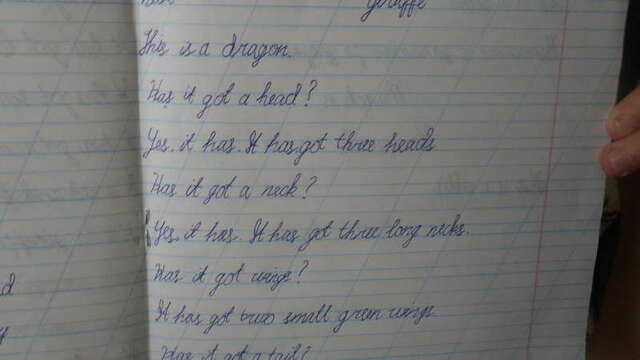 giraffe
This is a dragon.
Has it got a head?
Yes, it has. It has got three heads
Has it got a neck?
Yes, it has. It has got three long necks.
Has it got wings?
It has got two small green wings
Has it got a tail?